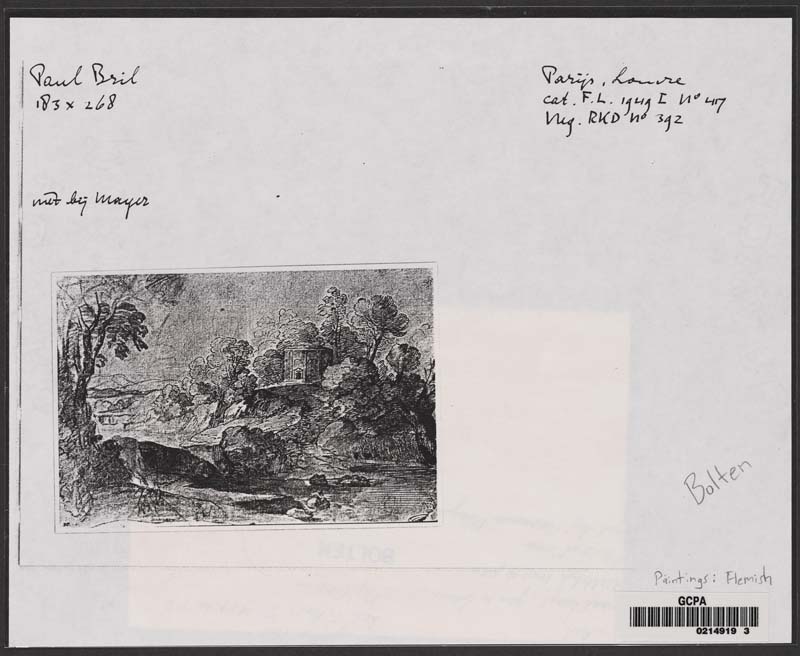 Paul Bril
183 x 268
Parijs, Louvre
cat. F.L. 1949 I No 417
Neg. RKD No 392
niet bij Mayer
Bolten
Paintings: Flemish
GCPA
0214919 3